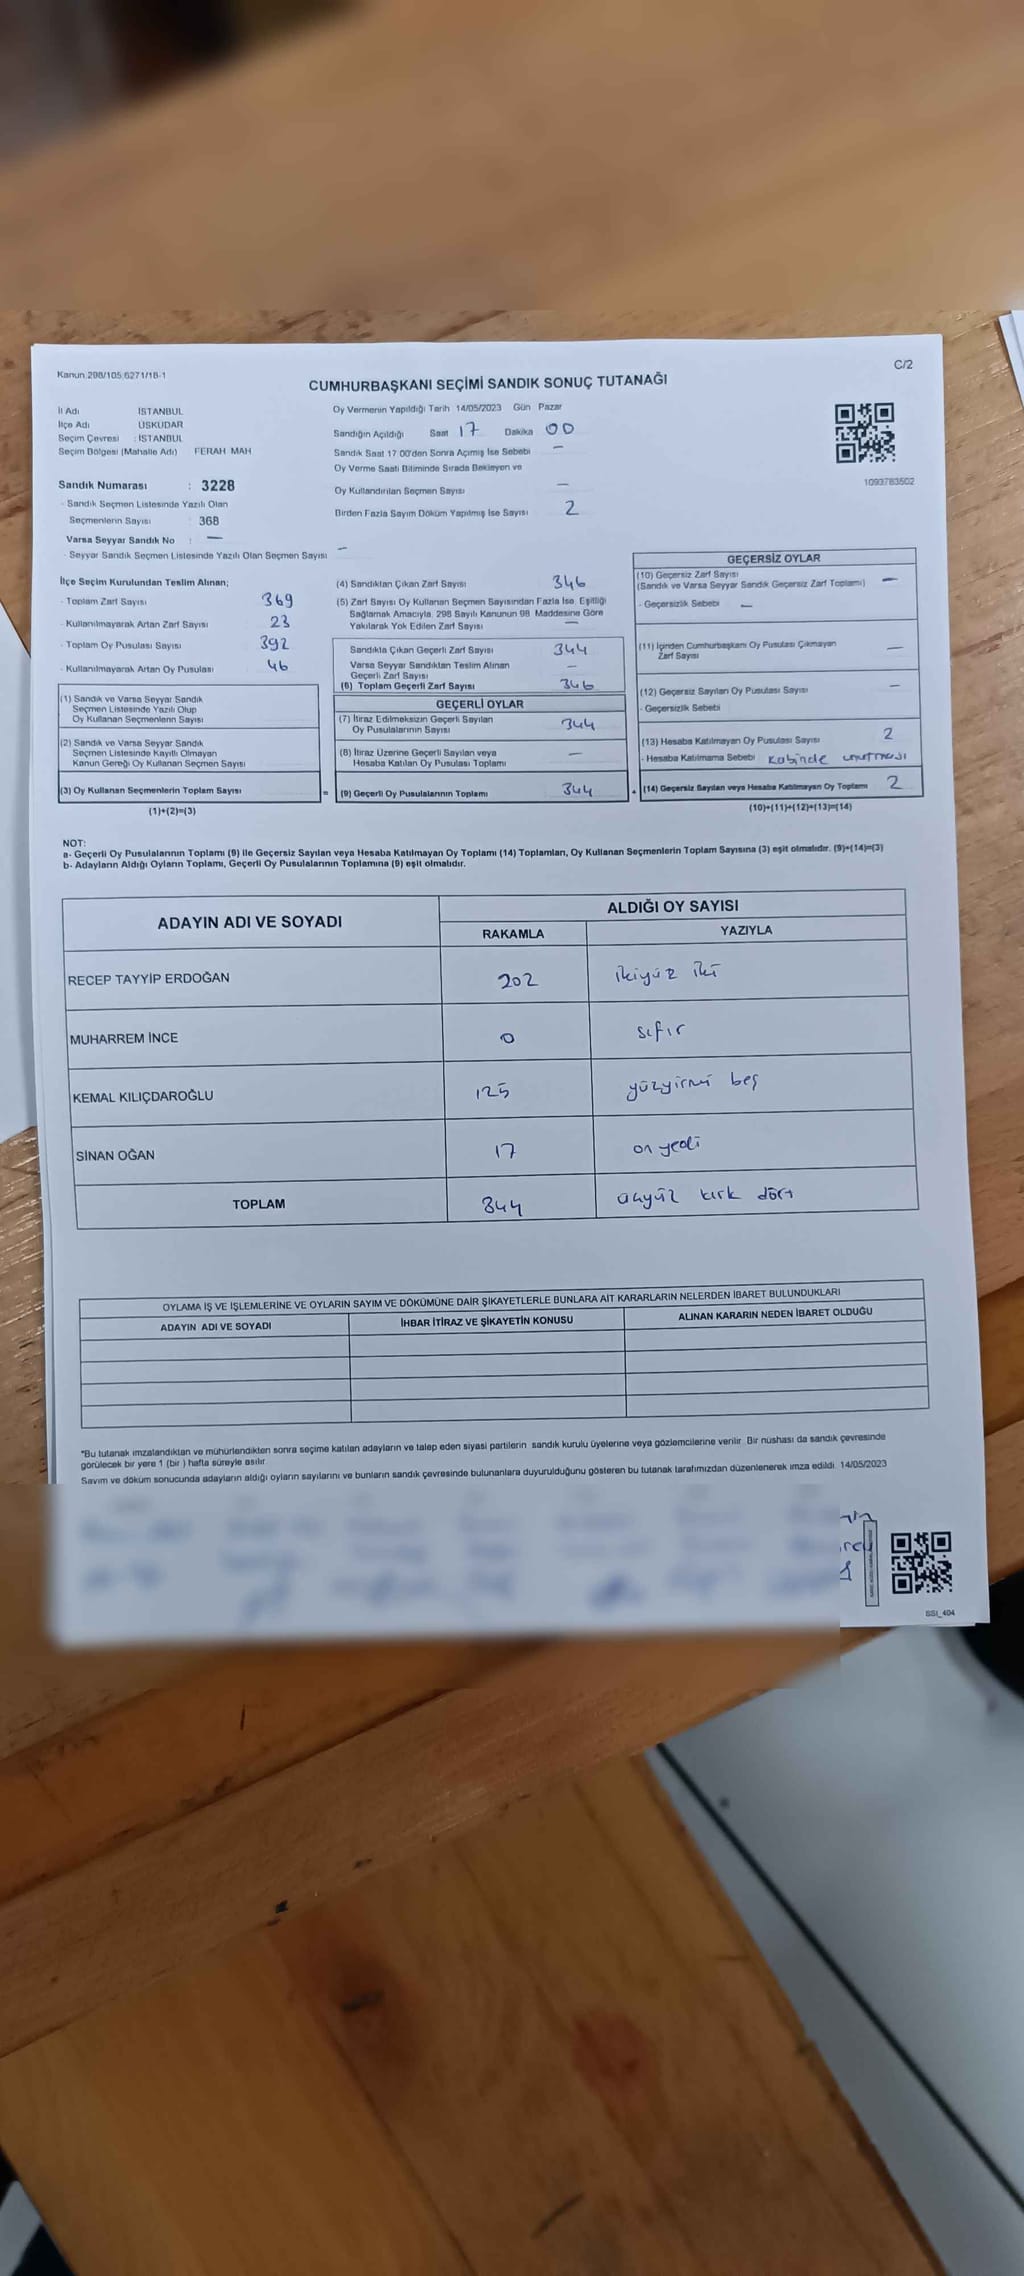 Kanun.298/105,6271/18-1
C/2
CUMHURBAŞKANI SEÇİMİ SANDIK SONUÇ TUTANAĞI
İl Adı İSTANBUL
İlçe Adı ÜSKÜDAR
Seçim Çevresi : İSTANBUL
Seçim Bölgesi (Mahalle Adı) FERAH MAH
Sandık Numarası : 3228
- Sandık Seçmen Listesinde Yazılı Olan
Seçmenlerin Sayısı : 368
Varsa Seyyar Sandık No : —
- Seyyar Sandık Seçmen Listesinde Yazılı Olan Seçmen Sayısı —
Oy Vermenin Yapıldığı Tarih 14/05/2023 Gün Pazar
Sandığın Açıldığı Saat 17 Dakika 00
Sandık Saat 17 00'den Sonra Açımış İse Sebebi —
Oy Verme Saati Bitiminde Sırada Bekleyen ve
Oy Kullandırılan Seçmen Sayısı —
Birden Fazla Sayım Döküm Yapılmış İse Sayısı 2
1093783502
İlçe Seçim Kurulundan Teslim Alınan;
- Toplam Zarf Sayısı 369
- Kullanılmayarak Artan Zarf Sayısı 23
- Toplam Oy Pusulası Sayısı 392
- Kullanılmayarak Artan Oy Pusulası 46
(1) Sandık ve Varsa Seyyar Sandık
Seçmen Listesinde Yazılı Olup
Oy Kullanan Seçmenlerin Sayısı
(2) Sandık ve Varsa Seyyar Sandık
Seçmen Listesinde Kayıtlı Olmayan
Kanun Gereği Oy Kullanan Seçmen Sayısı
(3) Oy Kullanan Seçmenlerin Toplam Sayısı
(1)+(2)=(3)
(4) Sandıktan Çıkan Zarf Sayısı 346
(5) Zarf Sayısı Oy Kullanan Seçmen Sayısından Fazla İse, Eşitliği
Sağlamak Amacıyla, 298 Sayılı Kanunun 98. Maddesine Göre
Yakılarak Yok Edilen Zarf Sayısı —
Sandıkta Çıkan Geçerli Zarf Sayısı 344
Varsa Seyyar Sandıktan Teslim Alınan
Geçerli Zarf Sayısı —
(6) Toplam Geçerli Zarf Sayısı 346
GEÇERLİ OYLAR
(7) İtiraz Edilmeksizin Geçerli Sayılan
Oy Pusulalarının Sayısı 344
(8) İtiraz Üzerine Geçerli Sayılan veya
Hesaba Katılan Oy Pusulası Toplamı —
= (9) Geçerli Oy Pusulalarının Toplamı 344
GEÇERSİZ OYLAR
(10) Geçersiz Zarf Sayısı
(Sandık ve Varsa Seyyar Sandık Geçersiz Zarf Toplamı) —
- Geçersizlik Sebebi —
(11) İçinden Cumhurbaşkanı Oy Pusulası Çıkmayan
Zarf Sayısı —
(12) Geçersiz Sayılan Oy Pusulası Sayısı —
- Geçersizlik Sebebi
(13) Hesaba Katılmayan Oy Pusulası Sayısı 2
- Hesaba Katılmama Sebebi Kabinde unutması
+ (14) Geçersiz Sayılan veya Hesaba Katılmayan Oy Toplamı 2
(10)+(11)+(12)+(13)=(14)
NOT:
a- Geçerli Oy Pusulalarının Toplamı (9) ile Geçersiz Sayılan veya Hesaba Katılmayan Oy Toplamı (14) Toplamları, Oy Kullanan Seçmenlerin Toplam Sayısına (3) eşit olmalıdır. (9)+(14)=(3)
b- Adayların Aldığı Oyların Toplamı, Geçerli Oy Pusulalarının Toplamına (9) eşit olmalıdır.
ADAYIN ADI VE SOYADI ALDIĞI OY SAYISI
RAKAMLA YAZIYLA
RECEP TAYYİP ERDOĞAN 202 ikiyüz iki
MUHARREM İNCE 0 sıfır
KEMAL KILIÇDAROĞLU 125 yüzyirmi beş
SİNAN OĞAN 17 on yedi
TOPLAM 344 üçyüz kırk dört
OYLAMA İŞ VE İŞLEMLERİNE VE OYLARIN SAYIM VE DÖKÜMÜNE DAİR ŞİKAYETLERLE BUNLARA AİT KARARLARIN NELERDEN İBARET BULUNDUKLARI
ADAYIN ADI VE SOYADI İHBAR İTİRAZ VE ŞİKAYETİN KONUSU ALINAN KARARIN NEDEN İBARET OLDUĞU
*Bu tutanak imzalandıktan ve mühürlendikten sonra seçime katılan adayların ve talep eden siyasi partilerin sandık kurulu üyelerine veya gözlemcilerine verilir. Bir nüshası da sandık çevresinde
görülecek bir yere 1 (bir ) hafta süreyle asılır.
Sayım ve döküm sonucunda adayların aldığı oyların sayılarını ve bunların sandık çevresinde bulunanlara duyurulduğunu gösteren bu tutanak tarafımızdan düzenlenerek imza edildi. 14/05/2023
SSI_404